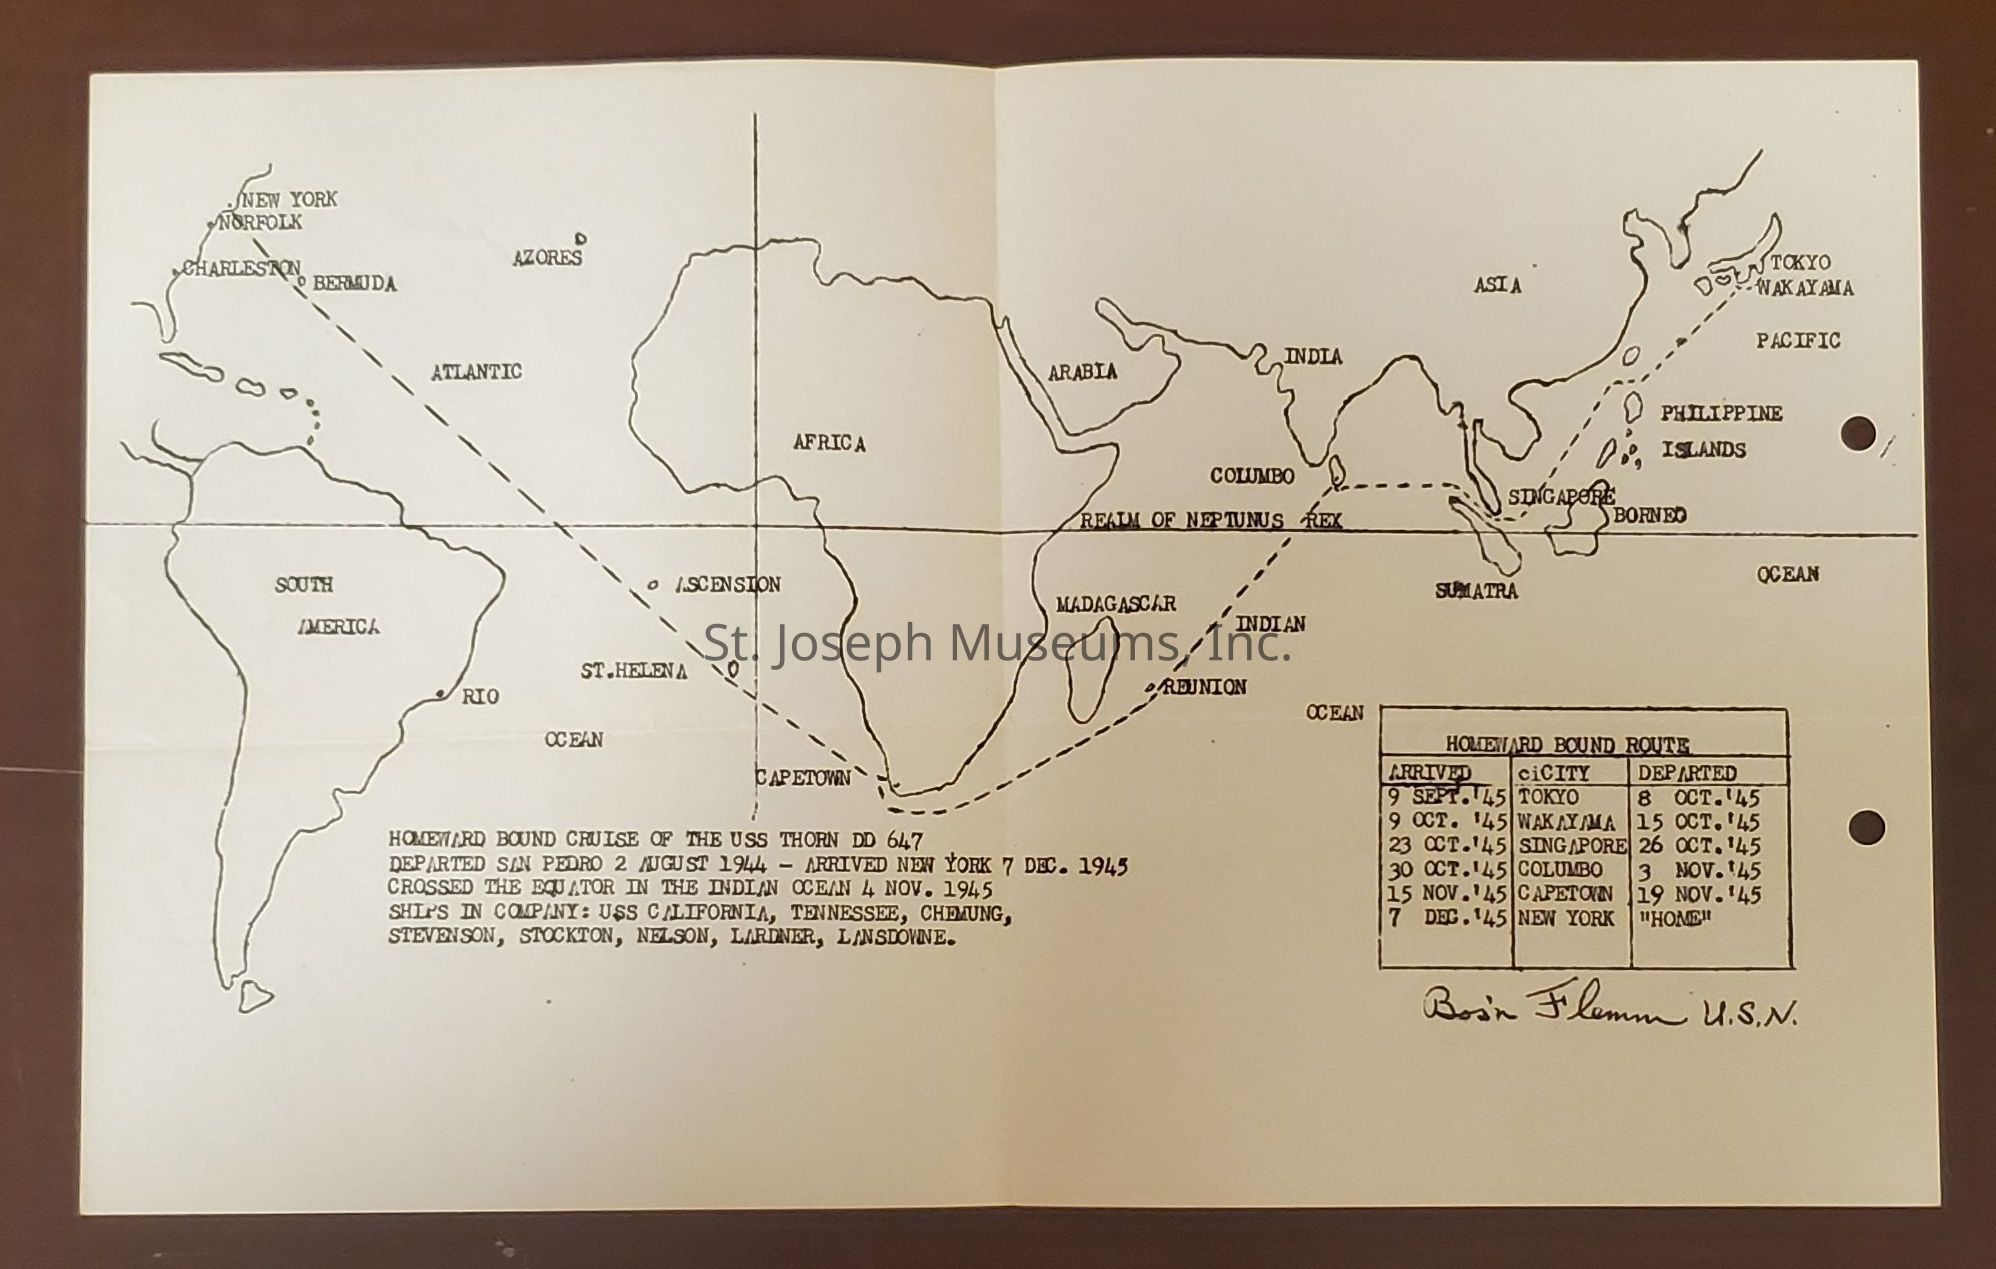 NEW YORK
NORFOLK
CHARLESTON
BERMUDA
AZORES
ATLANTIC
AFRICA
ARABIA
INDIA
ASIA
TOKYO
WAKAYAMA
PACIFIC
PHILIPPINE
ISLANDS
COLUMBO
SINGAPORE
BORNEO
REALM OF NEPTUNUS REX
SOUTH
AMERICA
ASCENSION
MADAGASCAR
SUMATRA
OCEAN
INDIAN
St. Joseph Museums, Inc.
ST.HELENA
REUNION
RIO
OCEAN
OCEAN
CAPETOWN
HOMEWARD BOUND CRUISE OF THE USS THORN DD 647
DEPARTED SAN PEDRO 2 AUGUST 1944 - ARRIVED NEW YORK 7 DEC. 1945
CROSSED THE EQUATOR IN THE INDIAN OCEAN 4 NOV. 1945
SHIPS IN COMPANY: USS CALIFORNIA, TENNESSEE, CHEMUNG,
STEVENSON, STOCKTON, NELSON, LARDNER, LANSDOWNE.
HOMEWARD BOUND ROUTE
ARRIVED ciCITY DEPARTED
9 SEPT.'45 TOKYO 8 OCT.'45
9 OCT. '45 WAKAYAMA 15 OCT.'45
23 OCT.'45 SINGAPORE 26 OCT.'45
30 OCT.'45 COLUMBO 3 NOV.'45
15 NOV.'45 CAPETOWN 19 NOV.'45
7 DEC.'45 NEW YORK "HOME"
Bos'n Flemm U.S.N.